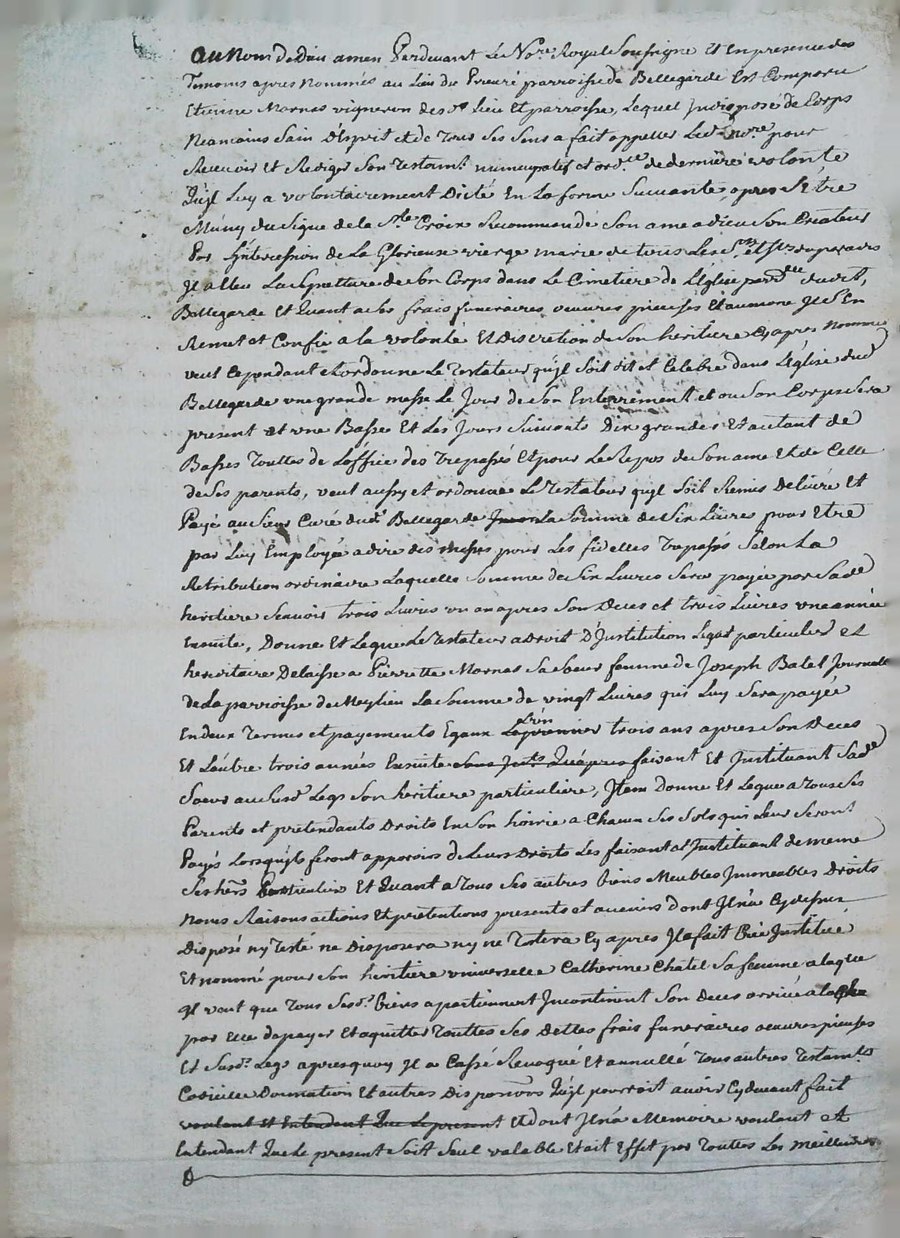 Au Nom de Dieu amen Pardevant Le No.re Royal Soussigne Et En presence des
Temoins apres Nommés au Lieu du Preuré parroisse de Bellegarde Est Comparu
Etienne Mornas vigneron desd. lieu Et parroisse, Lequel Jndisposé de Corps
Neamoins Sain D'Esprit et de Tous Ses Sens a fait appeller Led. No.re pour
Recevoir Et Rediger Son Testam.t nuncupatif et ord.ce de derniere volonte
Qu'jl Luy a volontairement Dicté En La forme Suivante, apres S'Etre
Muny du Signe de la S.te Croix Recommandé Son ame a dieu Son Createur
Par Jntercession de La Glorieuse vierge marie de tous Les S.ts et S.tes du paradis
Jl a Eleu La Sepulture de Son Corps dans Le Cimetiere de L'Eglise dudit
Bellegarde et Quant a Ses frais funeraires oeuvres pieuses Et aumone Jl S'En
Remet et Confie a la volonté Et Discretion de Son heritiere Cy apres Nommée
veut Cependant et ordonne Le Testateur qu'jl Soit dit et Celebré dans L'Eglise dud
Bellegarde une grande messe Le Jour de Son Enterrement et ou Son Corps Sera
present et une Basse Et Les Jours Suivants Dix grandes Et autant de
Basses Touttes de L'office des Trepassés Et pour Le Repos de Son ame Et de Celle
de Ses parents, veut aussy et ordonne Le Testateur qu'jl Soit Remis Delivré Et
Payé au Sieur Curé dud. Bellegarde La Somme de Six Livres pour Etre
par Luy Employée a dire des Messes pour Les fidelles Trepassés Selon La
Retribution ordinaire Laquelle Somme de Six Livres Sera payée par Sad.
heritiere Scavoir trois Livres un an apres Son Deces et trois Livres une année
Ensuite, Donne Et Legue Le Testateur a Droit D'Jnstitution Legat particulier et
hereditaire Delaisse a Pierrette Mornas Sa Soeur femme de Joseph Balet Journalier
de La parroisse de Meylieu La Somme de vingt Livres qui Luy Sera payée
En deux Termes et payements Egaux Le p.r trois ans apres Son Deces
Et L'autre trois années Ensuite faisant Et Jnstituant Sad.
Soeur au Susd. Legs Son heritiere particuliere, Jtem Donne Et Legue a Tous Ses
Parents et pretendants Droits En Son hoirie a Chacun Ses Sols qui Leur Seront
Payés Lorsqu'jls feront apparoir de Leurs Droits Les faisant et Jnstituant de meme
Ses her.s Particuliers Et Quant a Tous Ses autres biens Meubles Jmmeubles Droits
Noms Raisons actions Et pretentions presents et avenirs Dont Jl n'a Cy dessus
Disposé ny Testé ne Disposera ny ne Testera Cy apres Jl a fait Créé Jnstitué
Et nommé pour Son heritiere universelle Catherine Chatel Sa femme a laque
Jl veut que Tous Sesd. biens apartiennent Jncontinent Son Deces arrivé a la Charge
par Elle de payer Et aquitter Touttes Ses Dettes frais funeraires oeuvres pieuses
Et Susd. Legs apres quoy Jl a Cassé Revoqué Et annullé Tous autres Testam.ts
Codicille Donnation Et autres Dispositions Qu'jl pourroit avoir Cydevant fait
voulant Et Entendant Que Le present Et dont Jl n'a Memoire voulant et
Entendant Que Le present Soit Seul valable Et ait Effet par Touttes Les meilleures